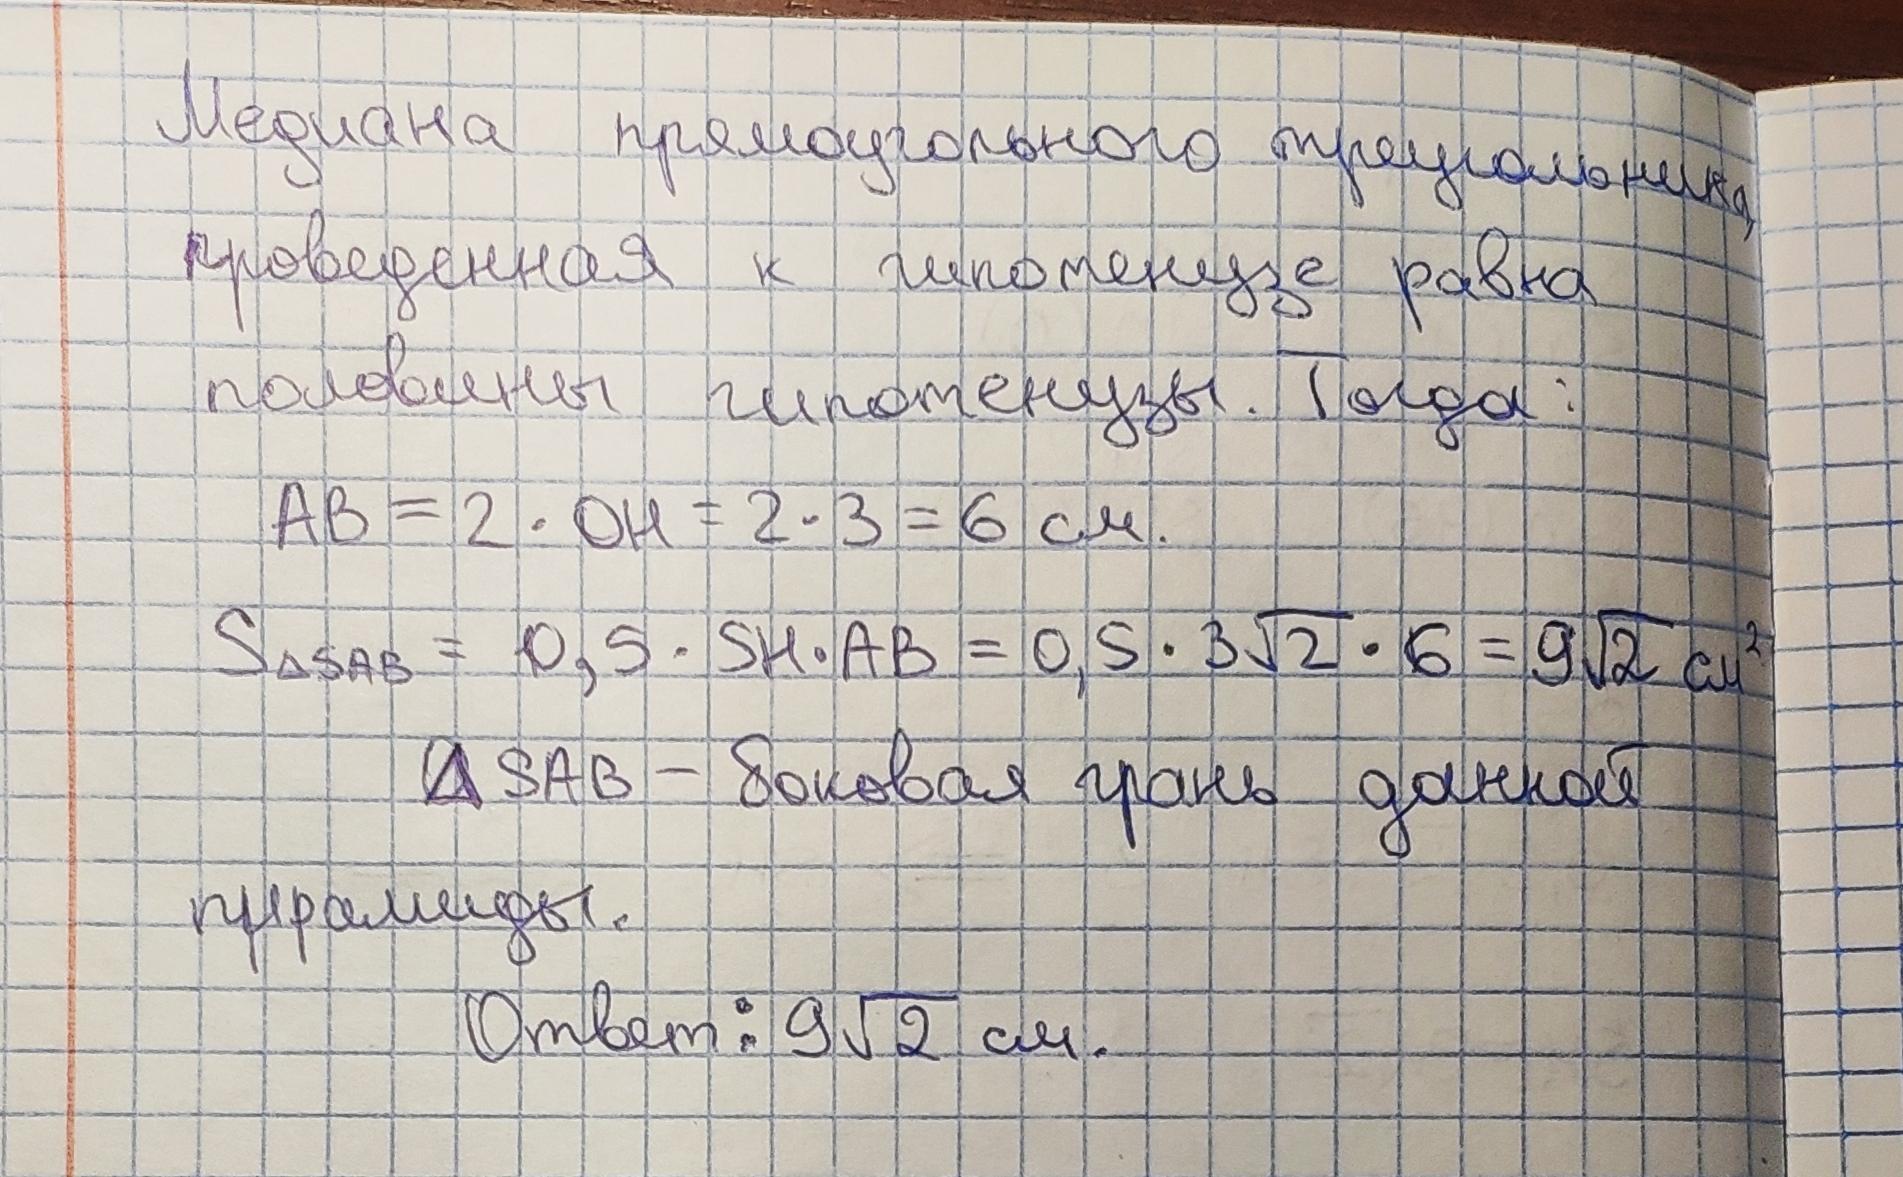 Медиана прямоугольного треугольника,
проведенная к гипотенузе равна
половины гипотенузы. Тогда:
AB = 2 · OH = 2 · 3 = 6 см.
S△SAB = 0,5 · SH · AB = 0,5 · 3√2 · 6 = 9√2 см²
△ SAB – боковая грань данной
пирамиды.
Ответ: 9√2 см.